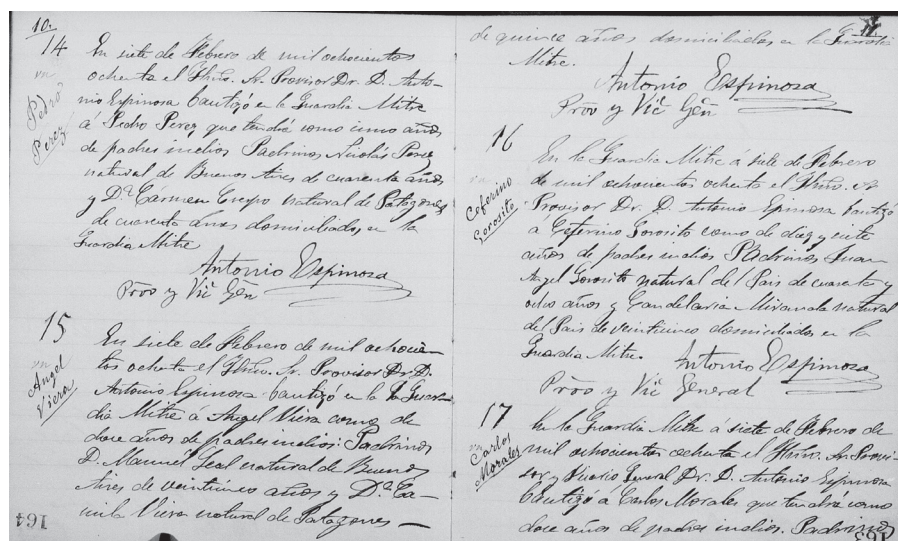 10.
14
Pedro
Perez
En siete de Febrero de mil ochocientos
ochenta el Iltmo. Sr. Provisor Dr. D. Anto-
nio Espinosa bautizó en la Guardia Mitre
á Pedro Perez, que tendrá como cinco años
de padres indios Padrinos Nicolás Perez
natural de Buenos Aires de cuarenta años
y Dª Cármen Crespo natural de Patagones
de cuarenta años domiciliados en la
Guardia Mitre
Antonio Espinosa
Proo y Vic Gen
15
Angel
Viera
En siete de Febrero de mil ochocien-
tos ochenta el Iltmo. Sr. Provisor Dr D.
Antonio Espinosa bautizó en la Guar-
dia Mitre á Angel Viera como de
doce años de padres indios: Padrinos
D. Manuel Leal natural de Buenos
Aires de veintiunco años y Dª Ca-
mila Viera natural de Patagones —
164
11.
de quince años domiciliados en la Guardia
Mitre.
Antonio Espinosa
Proo y Vic Gen
16
Ceferino
Gorosito
En la Guardia Mitre á siete de Febrero
de mil ochocientos ochenta el Iltmo. Sr
Provisor Dr. D. Antonio Espinosa bautizó
á Ceferino Gorosito como de diez y siete
años de padres indios Padrinos Juan
Angel Gorosito natural del Pais de cuarenta y
ocho años y Candelaria Miranda natural
del Pais de veintiunco domiciliados en la
Guardia Mitre.
Antonio Espinosa
Proo y Vic General
17
Carlos
Morales
En la Guardia Mitre a siete de Febrero de
mil ochocientos ochenta el Iltmo. Sr. Provi-
sor y Vicario General Dr. D. Antonio Espinosa
bautizó a Carlos Morales que tendrá como
doce años de padres indios. Padrinos
163